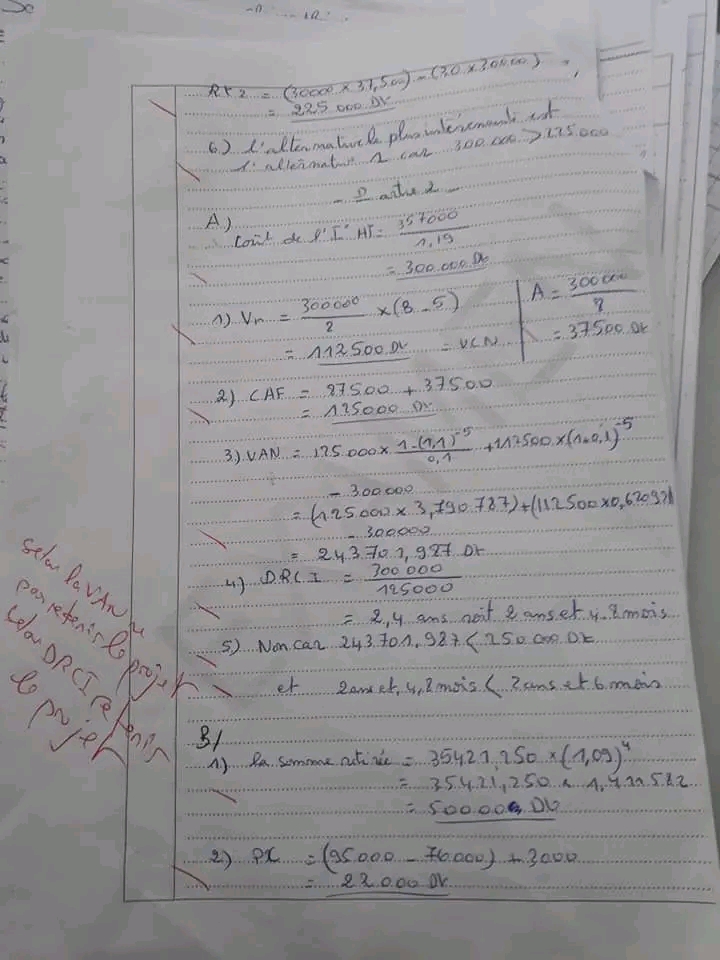 = (30000 x 37,500) - (30 x 30000)
= 225.000 Dt
6) l'alternative la plus intéressante est
l'alternative 1 car 300.000 > 225.000
Partie 2
A)
Coût de l'I° HT = 357000 / 1,19
= 300.000 Dt
1) Vr = 300000 / 8 x (8 - 5)
= 112500 Dt = VCN
A = 300000 / 8
= 37500 Dt
2) CAF = 87500 + 37500
= 125000 Dt
3) VAN = 125.000 x 1-(1,1)^-5 / 0,1 + 112500 x (1+0,1)^-5
- 300.000
= (125.000 x 3,790.787) + (112500 x 0,62092)
- 300000
= 243.701,987 Dt
4) DRCI = 300 000 / 125000
= 2,4 ans soit 2 ans et 4.8 mois
5) Non car 243.701,987 < 250 000 Dt
et 2 ans et 4,8 mois < 2 ans et 6 mois
selon la VAN ne
pas retenir le projet
selon DRCI retenir
le projet
B/
1) la somme retirée = 35421,250 x (1,09)^4
= 35421,250 x 1,411582
= 50000 Dt
2) = (95.000 - 76.000) + 3000
= 22.000 Dt